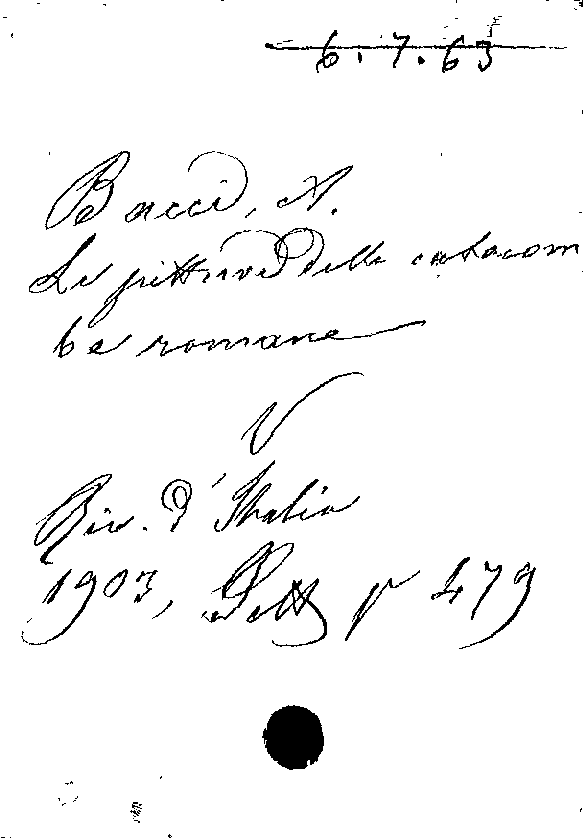 6.7.63
Bacci, A.
Le pitture delle catacom
be romane
V
Riv. d'Italia
1903, Sett p 479